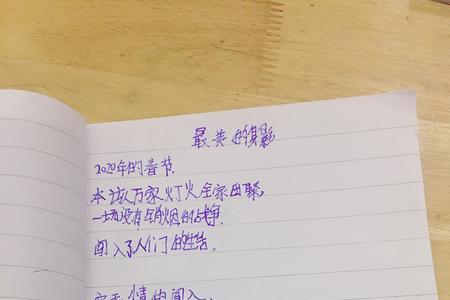 最美的身影
2020年的春节
本该万家灯火全家团聚
一场没有硝烟的战争
闯入了人们的生活
情的闯入